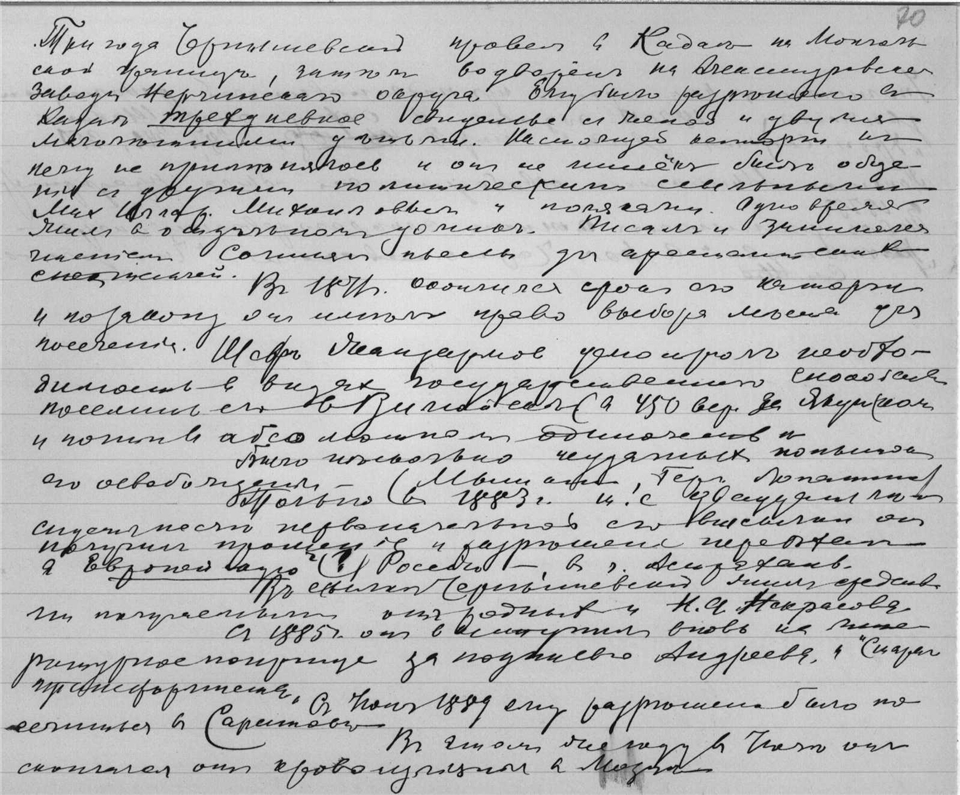 70
Три года Чернышевский провел в Кадае на Монголь
ской границе, затем водворён на Александровском
Заводе Нерчинского округа. Ему было разрешено в
Кадае трехдневное свиданье с женой и двумя
малолетними детьми. Настоящей каторги к
нему не применялось и он не лишён был обще
ния с другими политическими ссыльными
Мих. Илар. Михайловым и поляками. Одно время
жил в отдельном домике. Писал и занимался
чтением Сочинял пьесы для арестантских
спектаклей.
В 1871 г. окончился срок его каторги
и по закону он имел право выбора места для
поселения. Шеф жандармов усмотрел необхо-
димость в видах государственного спокойствия
поселить его в Вилюйске (в 450 вер. за Якутском
и почти в абсолютном одиночестве
Было несколько неудачных попыток
его освобождения – (Мышкин, Герм. Лопатин)
Только в 1883 г. т.е.
с первоначальной его высылки он
получил прощение и разрешение переехать
в Европейскую (?) Россию – в г. Астрахань.
В ссылке Чернышевский жил средства
ми получаемыми от родных и Н. А. Некрасова
С 1885 г. он выступил вновь на лите
ратурное поприще за подписью Андреева, и "Старый
трансформист"
С Июня 1889 ему разрешено было по
селиться в Саратове
В этом же году в он
скончался от кровоизлияния в Мозг